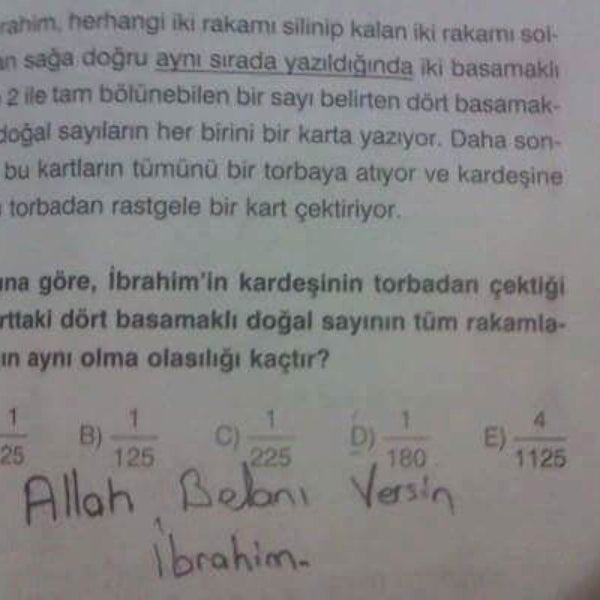 rahim, herhangi iki rakamı silinip kalan iki rakamı sol-
an sağa doğru aynı sırada yazıldığında iki basamaklı
2 ile tam bölünebilen bir sayı belirten dört basamak-
doğal sayıların her birini bir karta yazıyor. Daha son-
bu kartların tümünü bir torbaya atıyor ve kardeşine
torbadan rastgele bir kart çektiriyor.
una göre, İbrahim'in kardeşinin torbadan çektiği
rttaki dört basamaklı doğal sayının tüm rakamla-
ın aynı olma olasılığı kaçtır?
1/25 B) 1/125 C) 1/225 D) 1/180 E) 4/1125
Allah Belanı Versin
İbrahim.